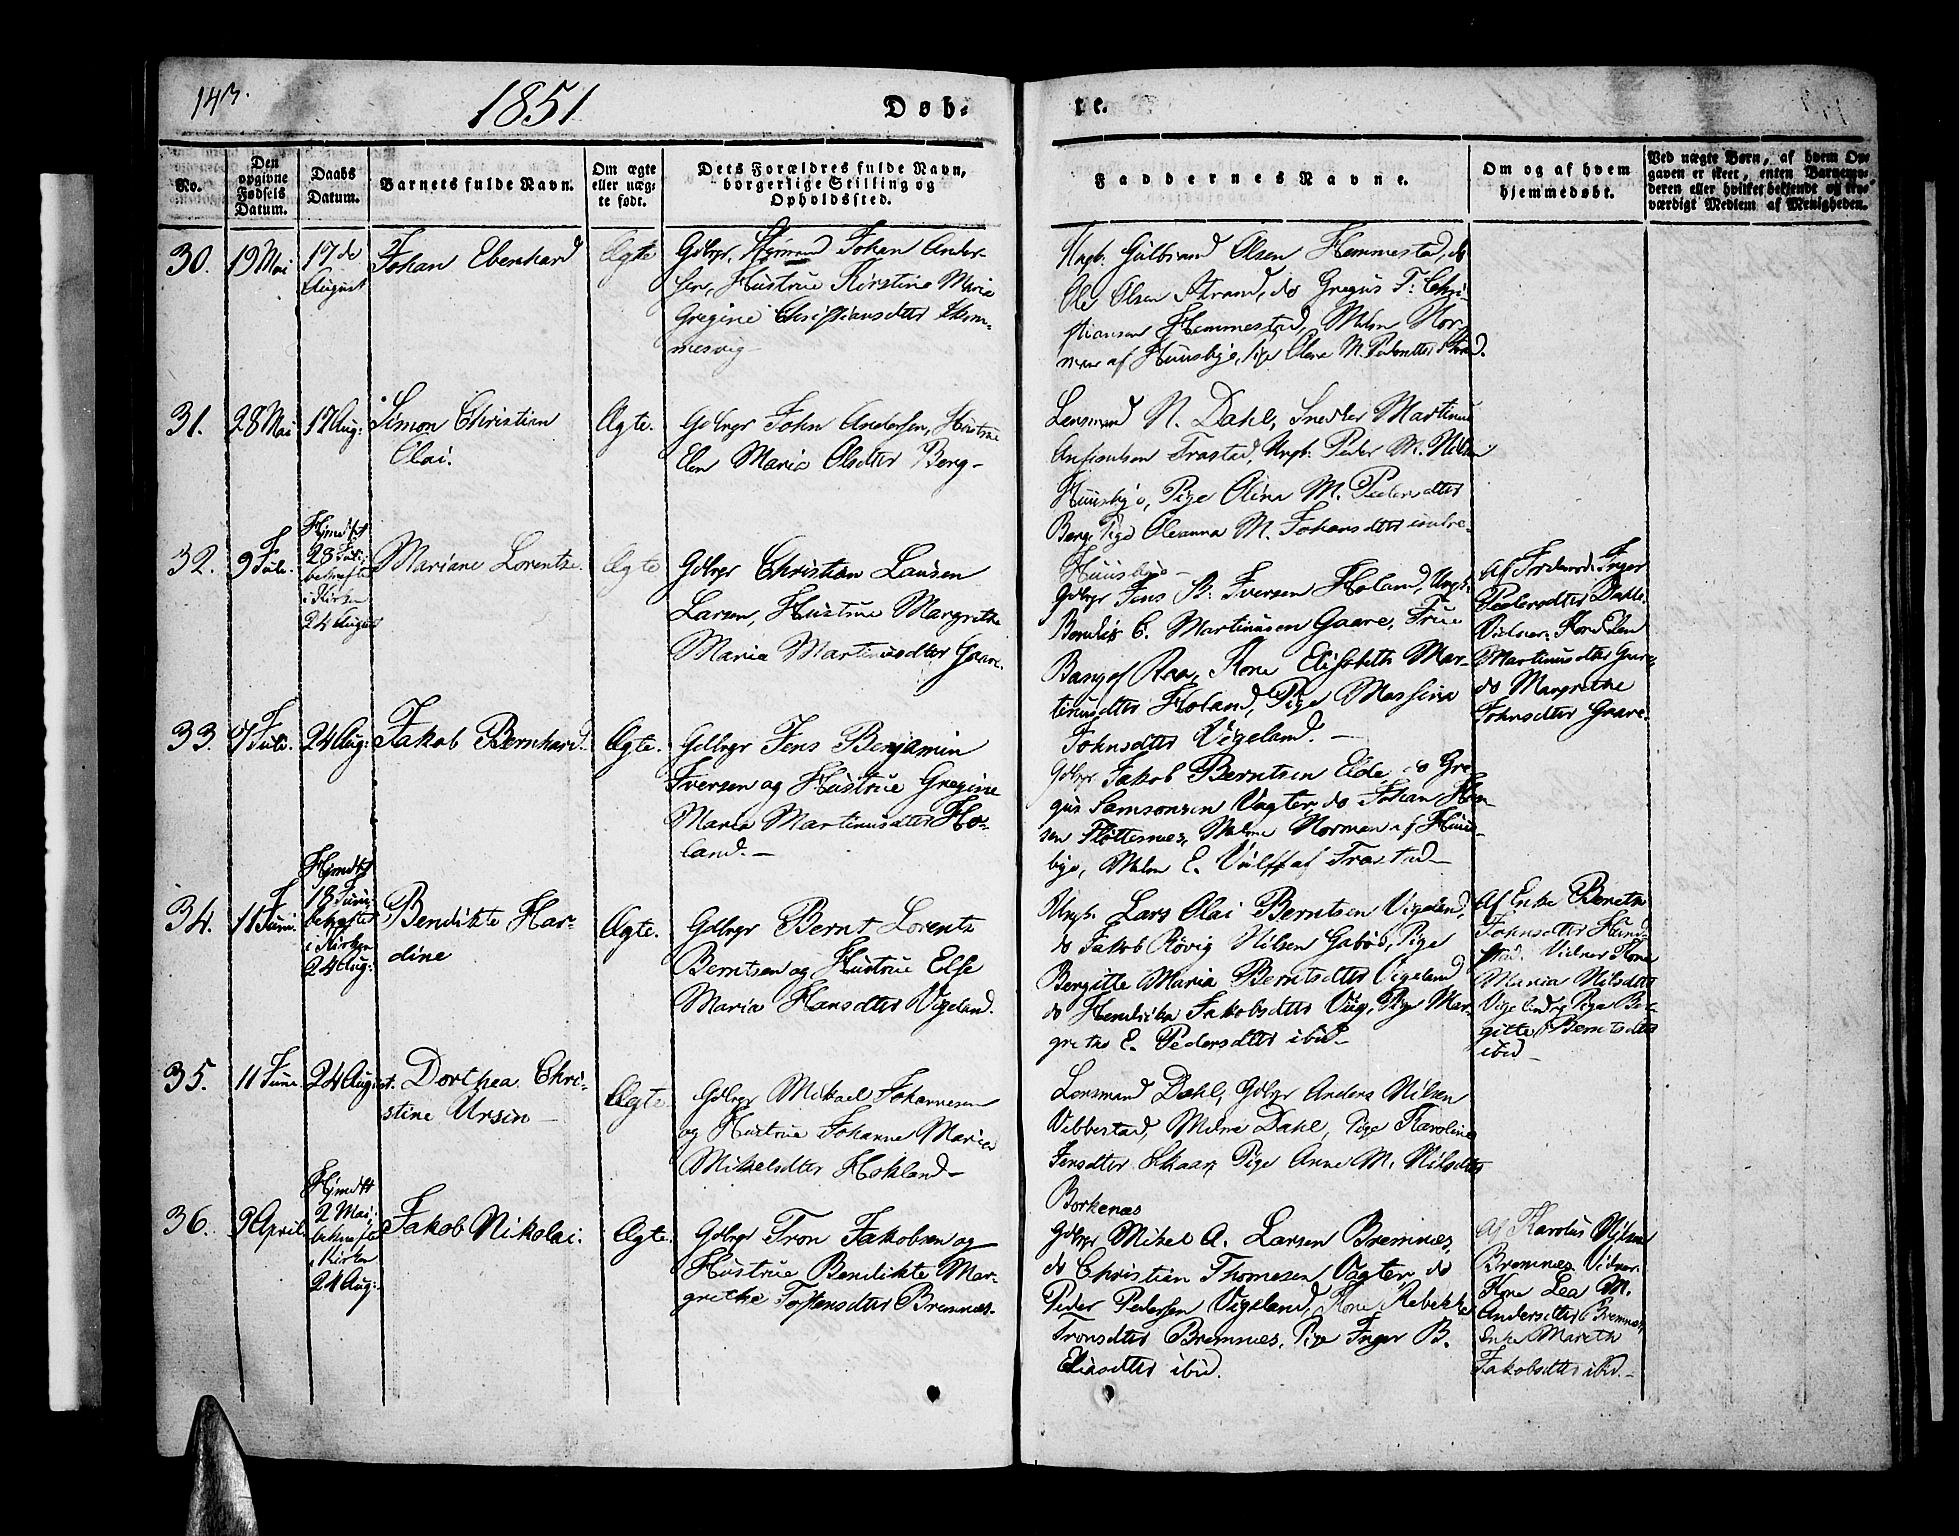 143.
1851
Døb-
te.
No.
Den opgivne Fødsels Datum.
Daabs Datum.
Barnets fulde Navn.
Om ægte eller uægte født.
Dets Forældres fulde Navn, borgerlige Stilling og Opholdssted.
Faddernes Navne.
Om og af hvem hjemmedøbt.
Ved uægte Børn, af hvem Opgaven er skeet, enten Barnemoderen eller hvilket bekjendt og troværdigt Medlem af Menigheden.
30.
19 Mai
17de
August
Johan Eberhard
Ægte
Gdbrgr Johan Ander-
sen, Hustrue Kirstine Marie
Gregine Christiansdtter
Ungk: Gulbrand Olsen Hemmestad, do
Ole Olsen Strand, do Gregus T. Chri-
stiansen Hemmestad, Mdm Nor-
man af Huusbye, Pige M. Pedersdtter
31.
28 Mai
17 Aug:
Simon Christian
Olai.
Ægte.
Gdbrgr John Andersen, Hustrue
Elen Maria Olsdtter Berg-
Lensmand N. Dahl, Snedker Martinus
Trastad, Ungk: Peder M. Nilsen
Huusbye, Pige Olina M. Pedersdtter
Berg, Pige Oleanna M. Johansdtter indre-
Huusbye-
32.
9 Juli.
Hjmdøbt
28 Juli
bekræftet
i Kirken
24 August
Mariane Lorentze.
Ægte
Gdbrgr Christian
Larsen, Hustrue Margrethe
Maria Martinusdtter Gaare.
Gdbrgr Jens B. Iversen Holand, Ungk:
C. Martinussen Gaare, Frue
Bang af Raa, Kone Elisabeth Mar-
tinusdtter Holand, Pige Massina
Johnsdtter Vigeland.-
Af Inger
Pedersdtter Dahle.
Vidner: Kone Elen
Martinusdtter Gaare
do Margrethe
Johnsdtter Gaare.
33.
7 Juli.
24 Aug:
Jakob Bernhard.
Ægte.
Gdbrgr Jens Benjamin
Iversen og Hustrue Gregine
Maria Martinusdtter Ho-
land.-
Gdbrgr Jakob Berntsen Elde, do Gre-
gus Samsonsen Vagter, do Johan Han-
sen Fløttenæs, Mdm Norman af Huus-
bye, Mdm E. Wulff af Trastad-
34.
11 Juni.
Hjmdøbt
18 Juni
bekræftet
i Kirken
24 Aug:
Bendikte Har-
dine
Ægte.
Gdbrgr Bernt Lorentz
Berntsen og Hustrue Else
Maria Hansdtter Vigeland.
Ungk. Lars Olai Berntsen Vigeland,
do Jakob Røvig Nilsen Gabøs, Pige
Bergitte Maria Berntsdtter Vigeland
do Hendrika Jakobsdtter Vig, Pige Mar-
grethe E. Pedersdtter ibid-
Af Enke Beretha
Johnsdtter
Vidner Kone
Maria Nilsdtter
Vigeland, Pige Ber-
gitte Berntsdtter
ibid-
35.
11 Juni
24 August.
Dorthea Chri-
stine Ursin-
Ægte.
Gdbrgr Mikael Johannesen
og Hustrue Johanne Maria
Mikelsdtter Hokland-
Lensmand Dahl, Gdbrgr Anders Nilsen
Vebbestad, Mdm Dahl, Pige Karoline
Jensdtter Skaar, Pige Anne M. Nilsdtter
Borkenæs
36.
9 April.
Hjmdøbt
2 Mai:
bekræftet
i Kirken
24 Aug:
Jakob Nikolai.
Ægte.
Gdbrgr Tron Jakobsen og
Hustrue Bendikte Mar-
grethe Torstensdtter Bremnæs.
Gdbrgr Mikel A. Larsen Bremnæs,
do Christian Thomesen Vagter, do
Peder Pedersen Vigeland, Kone Rebekka
Tronsdtter Bremnæs, Pige Inger B.
Eliasdtter ibid.
Af Karolus Nilsen
Bremnæs, Vidner
Kone Lea M.
Andersdtter Bremnæs,
Enke Mareth
Jakobsdtter ibid.-